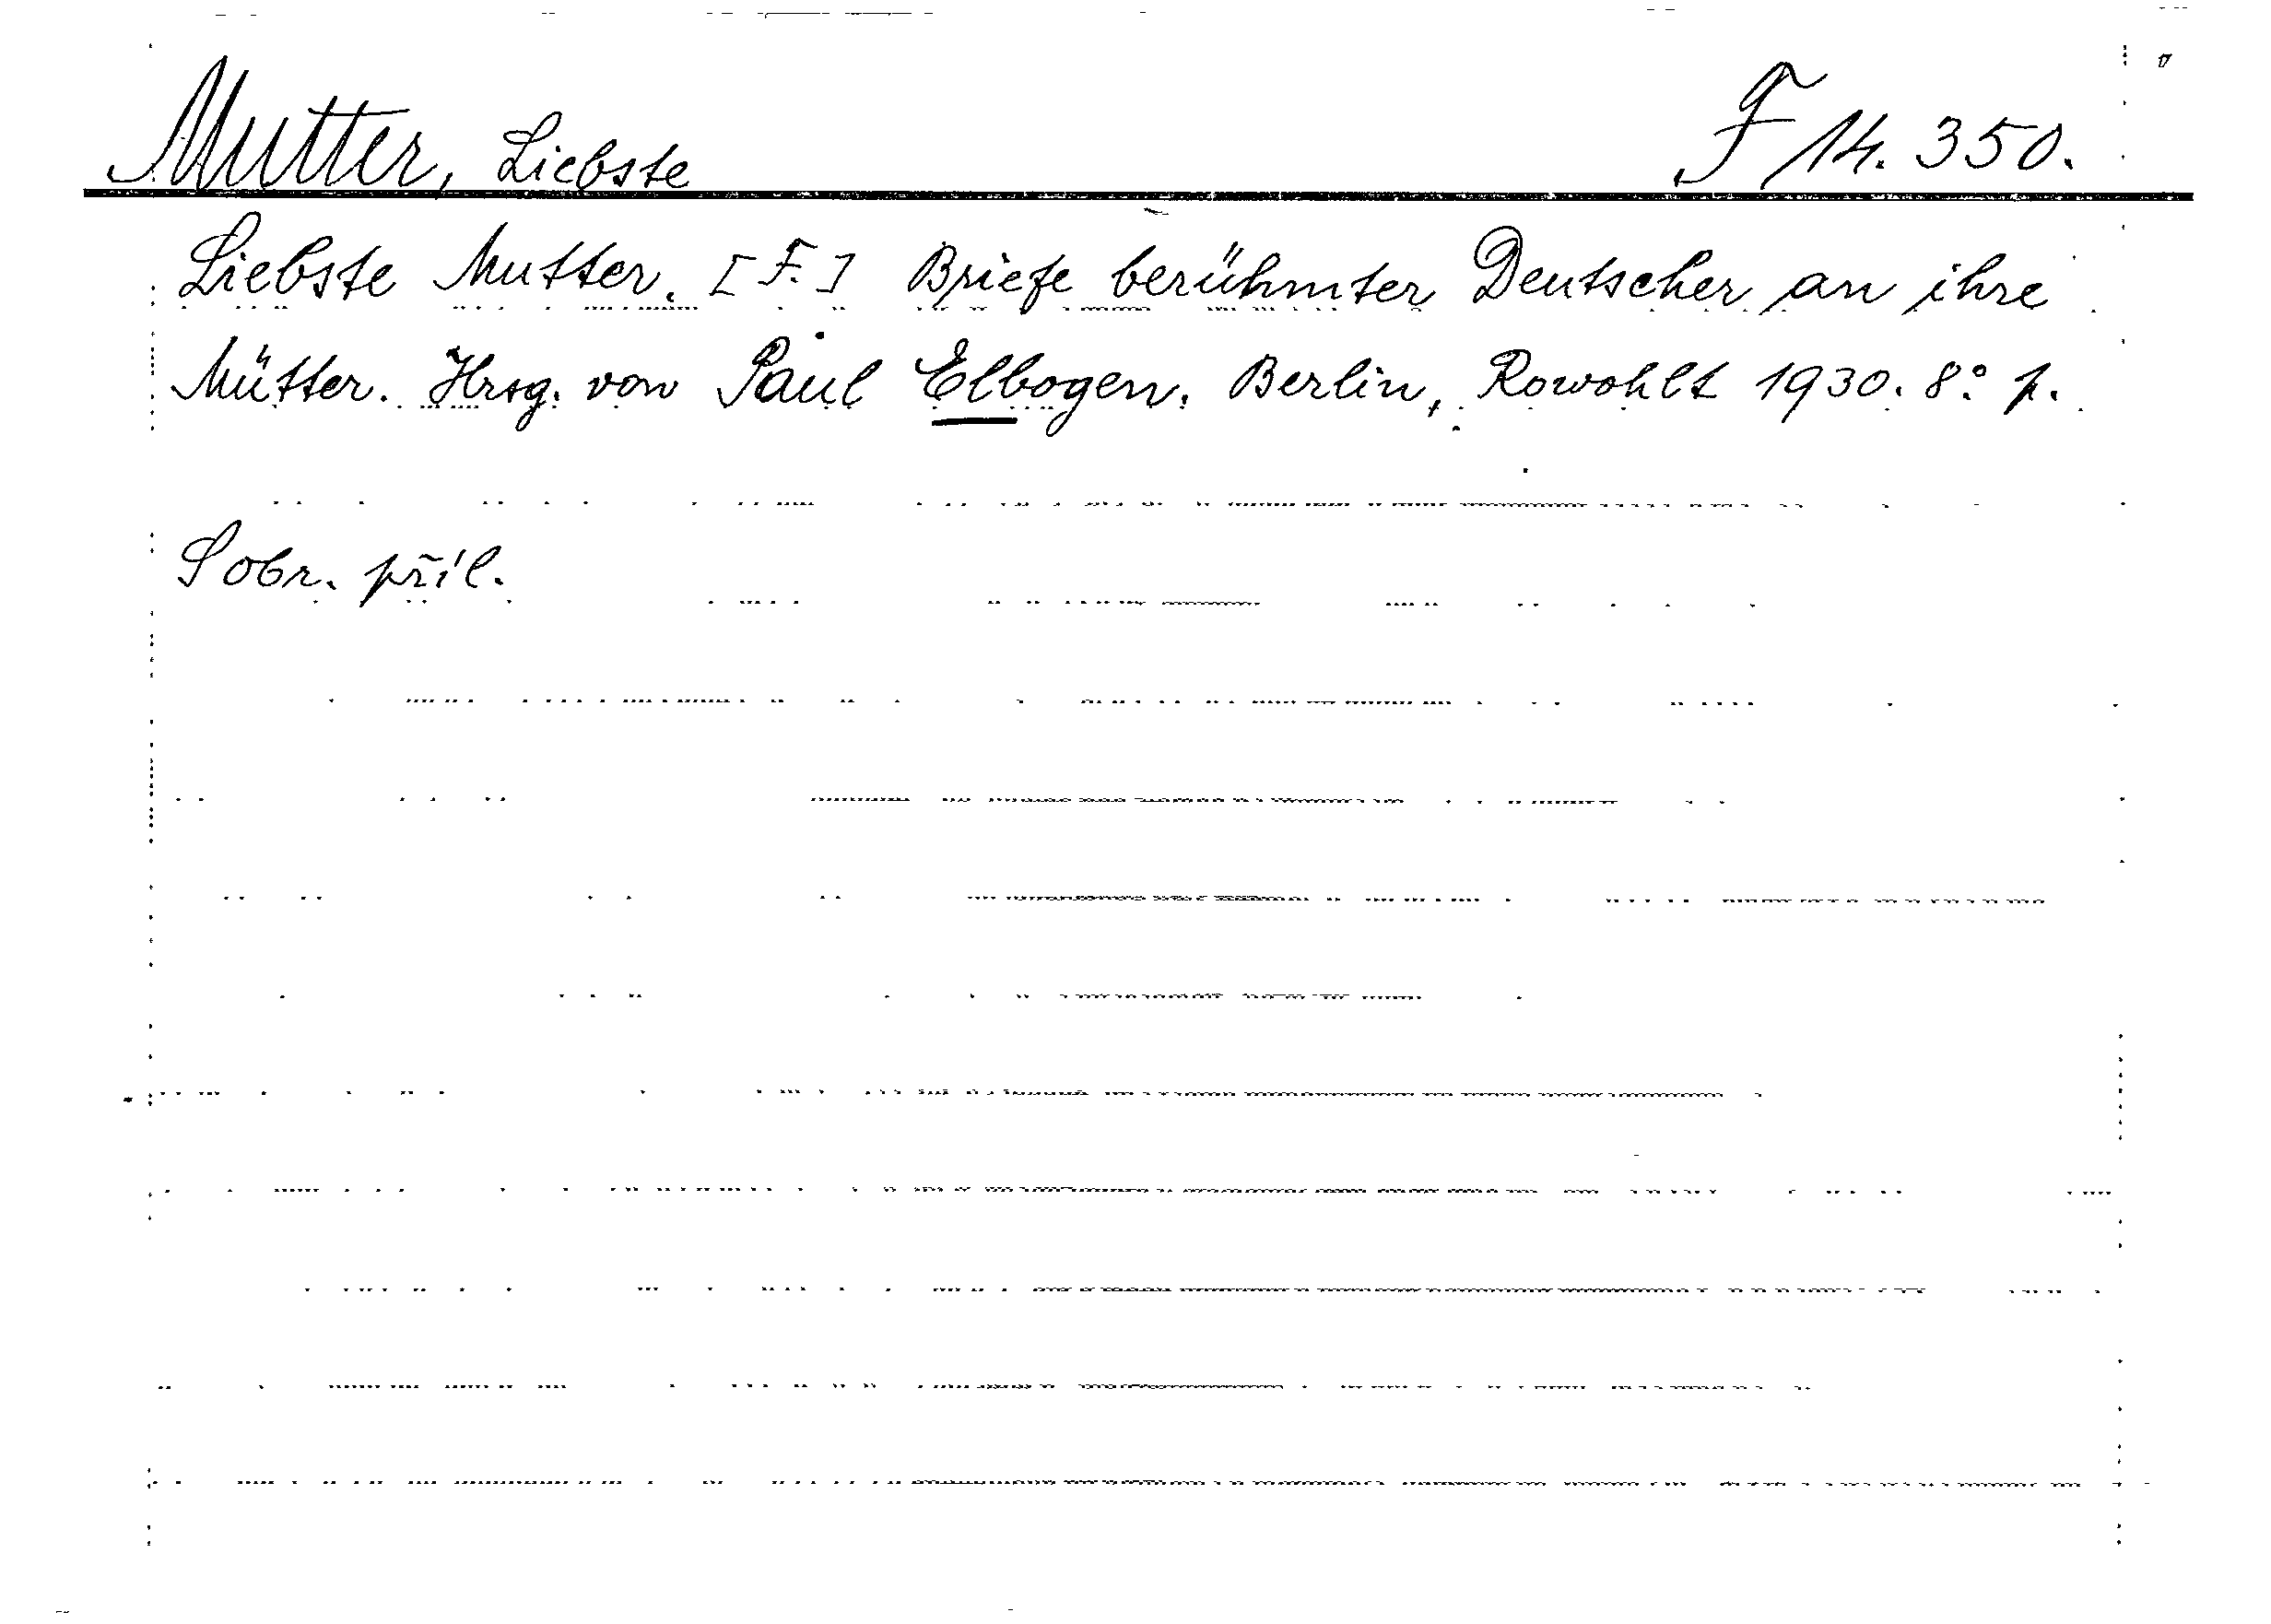 Mutter, Liebste F 14.350.
Liebste Mutter. [F.] Briefe berühmter Deutscher an ihre
Mütter. Hrsg. von Paul Elbogen. Berlin, Rowohlt 1930. 8° p.
S obr. příl.